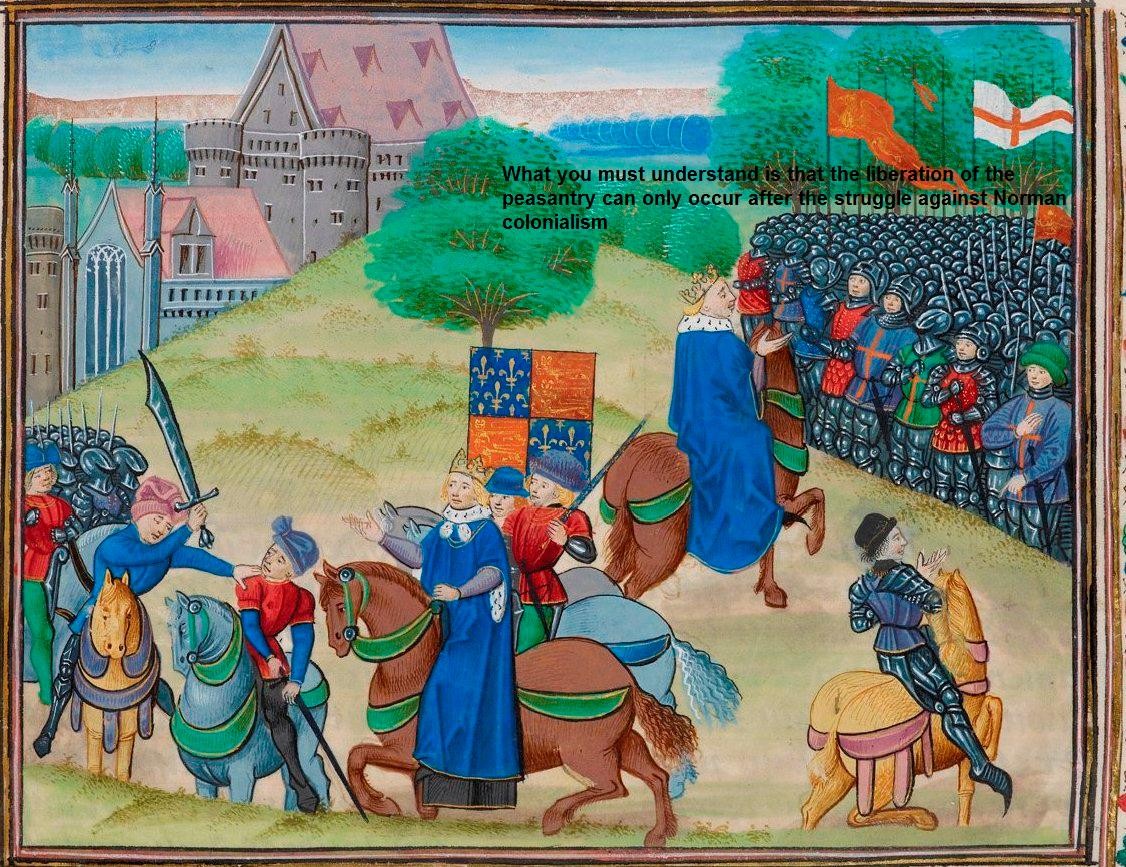 What you must understand is that the liberation of the
peasantry can only occur after the struggle against Norman
colonialism